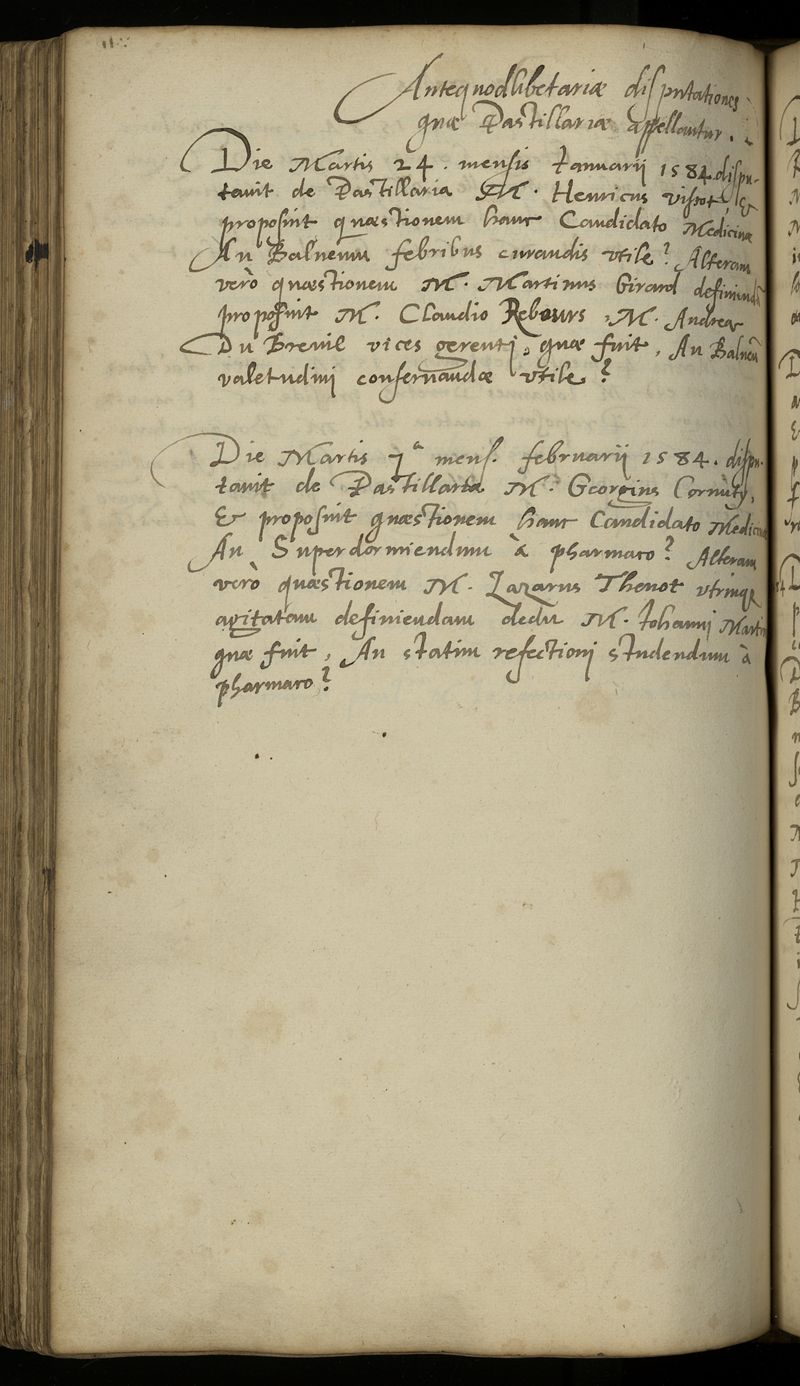 Antequodlibetariæ disputationes
quæ Pastillariæ appellantur.
Die Martis 24. mensis Ianuarij 1584. dispu-
tauit de Pastillaria M. Henricus &
proposuit quæstionem hanc Candidato Medicinæ
An Balneum febribus curandis vtile? Alteram
verò quæstionem M. Martinus Girard definiendā
proposuit M. Claudio Rebours, M. Andreæ
Du Breuil vices gerenti, quæ fuit, An Balneū
valetudini conseruandæ vtile?
Die Martis 7a mens. februarij 1584. dispu-
tauit de Pastillaria M. Georgius Cornuty,
& proposuit quæstionem hanc Candidato Medicinæ
An Superdormiendum à pharmaco? Alteram
verò quæstionem M. Lazarus Thenot vtrinque
agitatam definiendam dedit M. Iohanni Martin
quæ fuit, An statim refectioni studendum à
pharmaco?